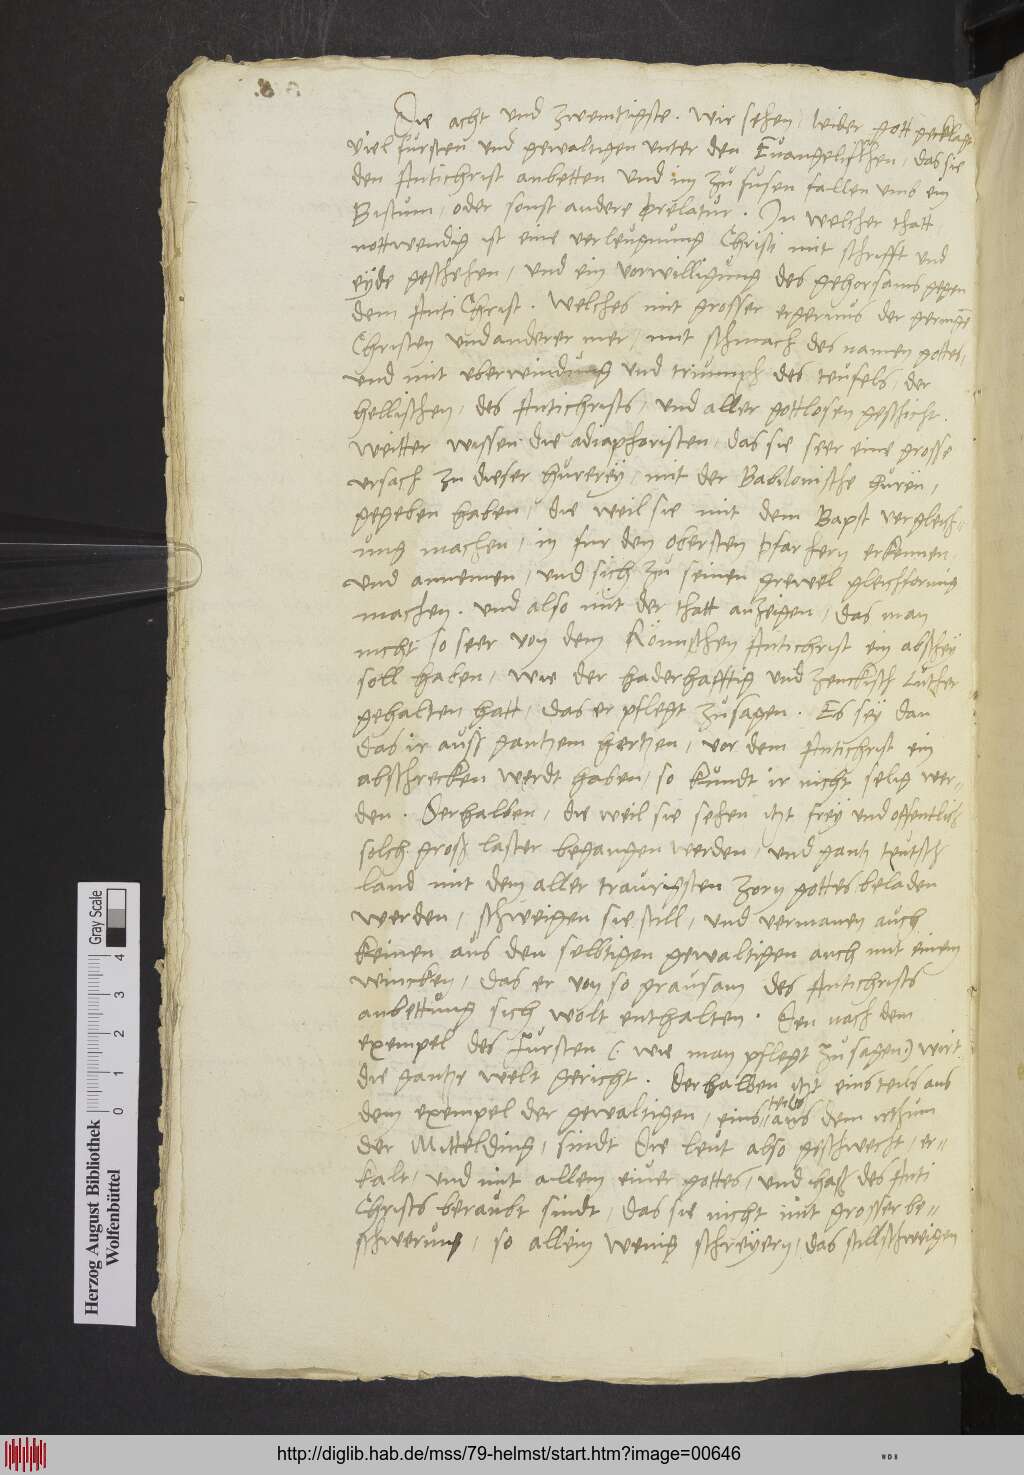 Die acht und zwentzigste. Wir sehen, leider gott geklagt
viel fürsten und gewaltigen unter den Evangelischen, das sie
den Antichrist anbetten und im zu fusen fallen umb ein
Bistum, oder sonst andere prelatur. In welcher thatt
nottwendig ist eine verleugnung Christi mit schrifft und
eyde geschehen, und ein vorwilligung des gehorsams gegen
dem AntiChrist. Welches mit grosser ergernus der geringen
Christen und anderer mer, mit schmach des namen gottes,
und mit uberwindung und triumph des teufels, der
hellischen, des Antichrists, und aller gottlosen geschicht.
Weitter wissen die adiaphoristen, das sie seer eine grosse
ursach zu dieser hurerey, mit der Babilonische huren,
gegeben haben, die weil sie mit dem Bapst vergleich=
ung machen, in fur den obersten pfarhern erkennen
und annemen, und sich zu seinen grewel gleichformig
machen. und also mit der thatt anzeigen, das man
nicht so seer von dem Römischen Antichrist ein abschey
soll haben, wie der haderhafftig und zenckisch Luther
gehalten hatt, das er pflegt zusagen. Es sey dan
das ir auss gantzem hertzen, vor dem Antichrist ein
abschrecken werdt haben, so kundt ir nicht selig wer=
den. Derhalben, die weil sie sehen itzt frey und offentlich
solch gross laster begangen werden, und gantz teutsch
land mit dem aller traurigsten zorn gottes beladen
werden, schweigen sie still, und vermanen auch
keinen aus den selbtigen gewaltigen auch mit einem
wincken, das er von so grausam des Antichrists
anbettung sich wolt enthalten. Den nach dem
exempel des Fursten (: wie man pflegt zu sagen:) wirt
die gantze welt gericht. derhalben itzt eins teils aus
dem exempel der gewaltigen, eins teils aus dem irthum
der Mittelding, sindt die leut also geschwecht, er=
kalt, und mit allem eiver gottes, und hass des Anti
Christs beraubt sindt, das sie nicht mit grosser be=
schwerung, so allein wenig schreyern, das stillschweigen
Herzog August Bibliothek
Wolfenbüttel
0 1 2 3 4
Gray Scale
http://diglib.hab.de/mss/79-helmst/start.htm?image=00646
WDB